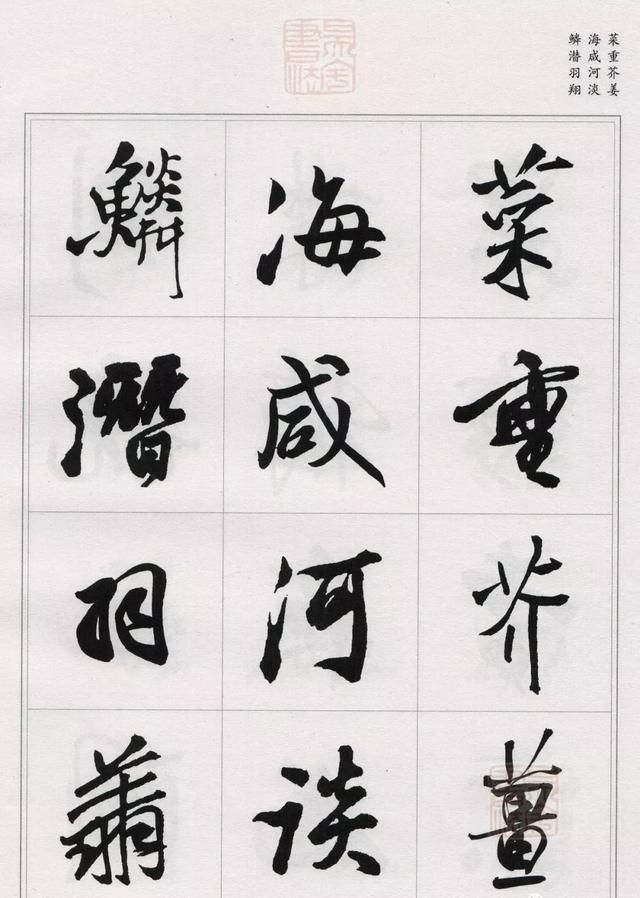 菜重芥姜
海咸河淡
鳞潜羽翔
菜重芥薑
海咸河谈
鱗潛羽翔